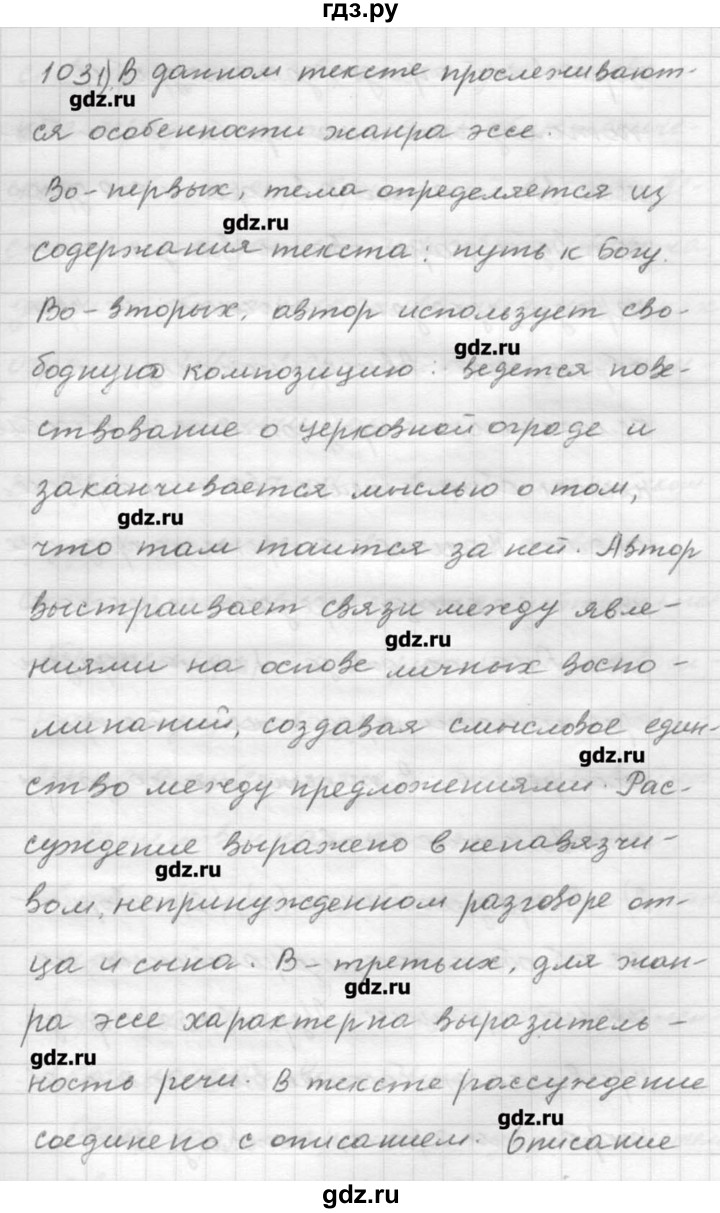 гдз.ру
103 1) В данном тексте прослеживают-
gdz.ru
ся особенности жанра эссе.
Во-первых, тема определяется из
gdz.ru
содержания текста: путь к Богу.
Во-вторых, автор использует сво-
gdz.ru
бодную композицию: ведется пове-
ствование о церковной ограде и
заканчивается мыслью о том,
gdz.ru
что там таится за ней. Автор
выстраивает связи между явле-
gdz.ru
ниями на основе личных воспо-
минаний, создавая смысловое един-
gdz.ru
ство между предложениями. Рас-
суждение выражено в ненавязчи-
gdz.ru
вом, непринужденном разговоре от-
ца и сына. В-третьих, для жан-
gdz.ru
ра эссе характерна выразитель-
gdz.ru
ность речи. В тексте рассуждение
gdz.ru
соединено с описанием. Описание
gdz.ru